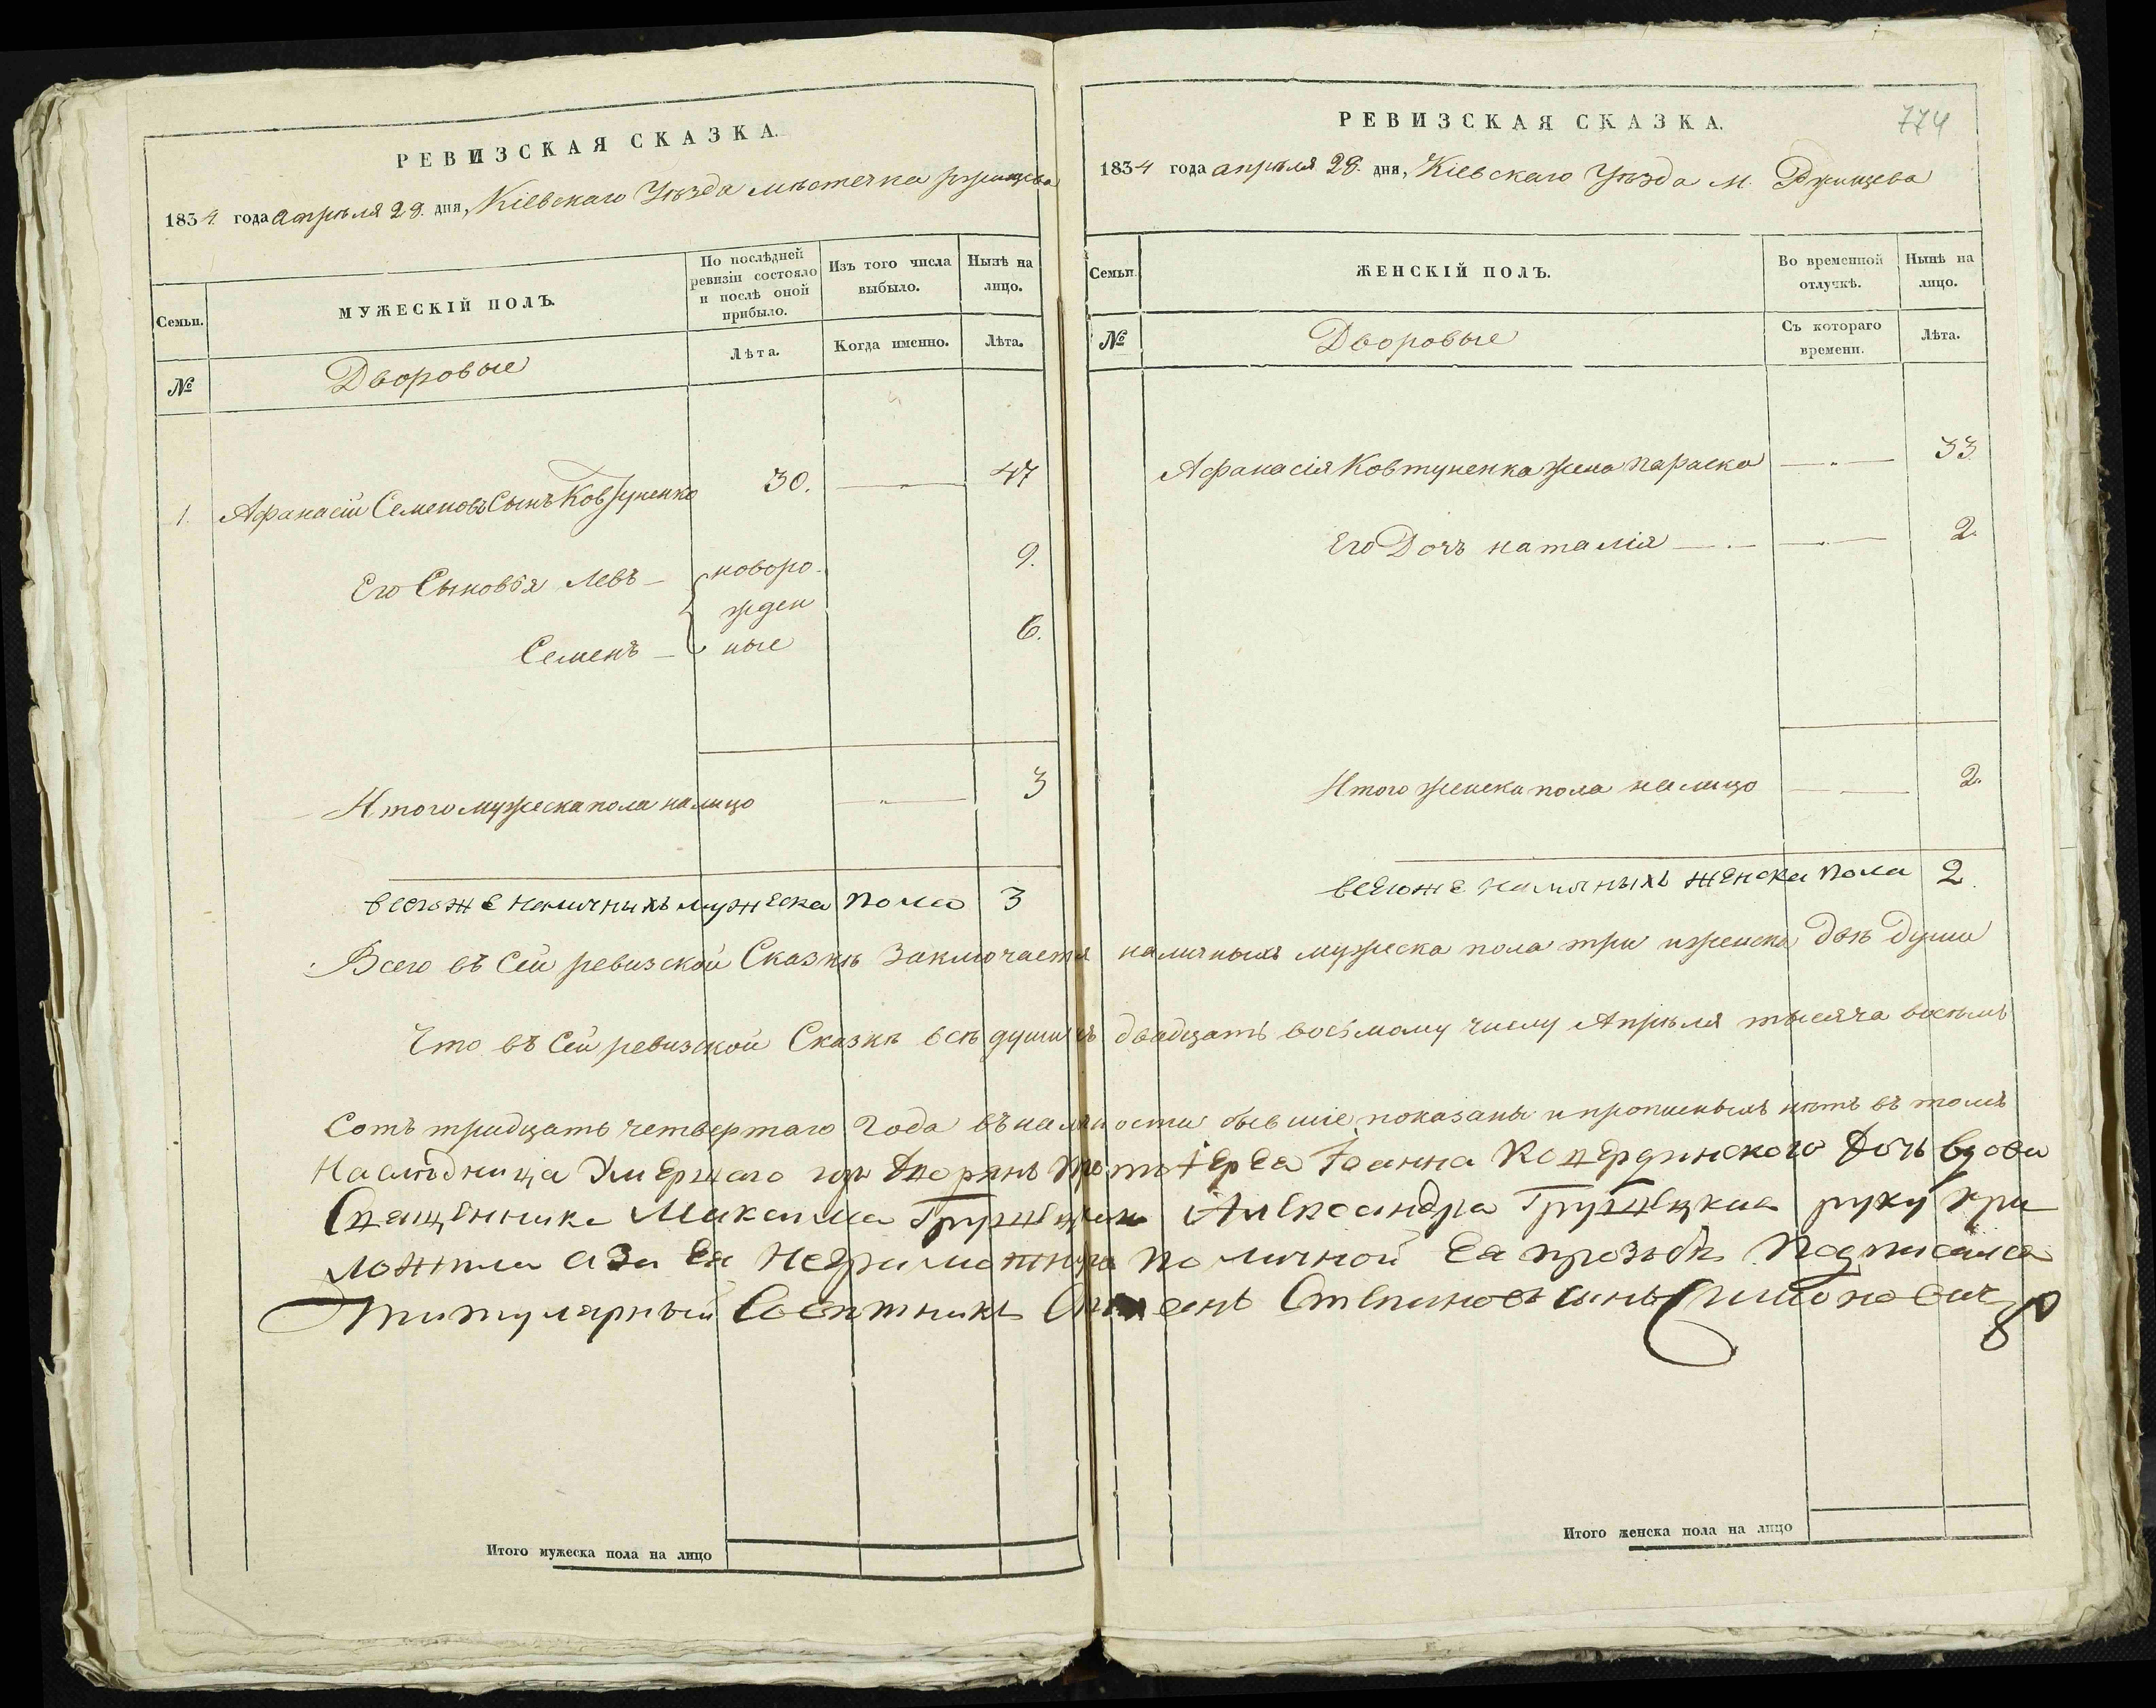 РЕВИЗСКАЯ СКАЗКА.
1834 года Апрѣля 28. дня, Кіевскаго Уѣзда мѣстечка Ржищева
Семьи. МУЖЕСКІЙ ПОЛЪ. По послѣдней ревизіи состояло и послѣ оной прибыло. Изъ того числа выбыло. Нынѣ на лицо.
№ Дворовые Лѣта. Когда именно. Лѣта.
1. Афанасій Семеновъ Сынъ Ковтуненко 30. 47
Его Сыновья Левъ – новоро- 9.
жден
Семенъ – ные 6.
Итого мужеска пола на лицо 3
всего же наличныхъ мужеска пола 3
РЕВИЗСКАЯ СКАЗКА. 774
1834 года апрѣля 28. дня, Кіевскаго Уѣзда м. Ржищева
Семьи. ЖЕНСКІЙ ПОЛЪ. Во временной отлучкѣ. Нынѣ на лицо.
№ Дворовые Съ котораго времени. Лѣта.
Афанасія Ковтуненка жена Параска 33
Его Дочь наталія 2.
Итого женска пола на лицо 2.
всего же наличныхъ женска пола 2.
Всего въ Сей ревизской Сказкѣ Заключается наличныхъ мужеска пола три и женска двѣ души
Что въ Сей ревизской Сказкѣ всѣ души къ двадцать восьмому числу Апрѣля тысяча восемь
Сотъ тридцать четвертаго Года въ наличности бывшіе показаны и прописныхъ нѣтъ въ томъ
Наслѣдница Умершаго Іоанна дочь вдова
Священника Максима Александра Грушецкая руку при
ложила а за Ея неграмотную по личной Ея прозьбѣ Подписался
титулярный Совѣтникъ Степановъ сынъ
Итого мужеска пола на лицо
Итого женска пола на лицо